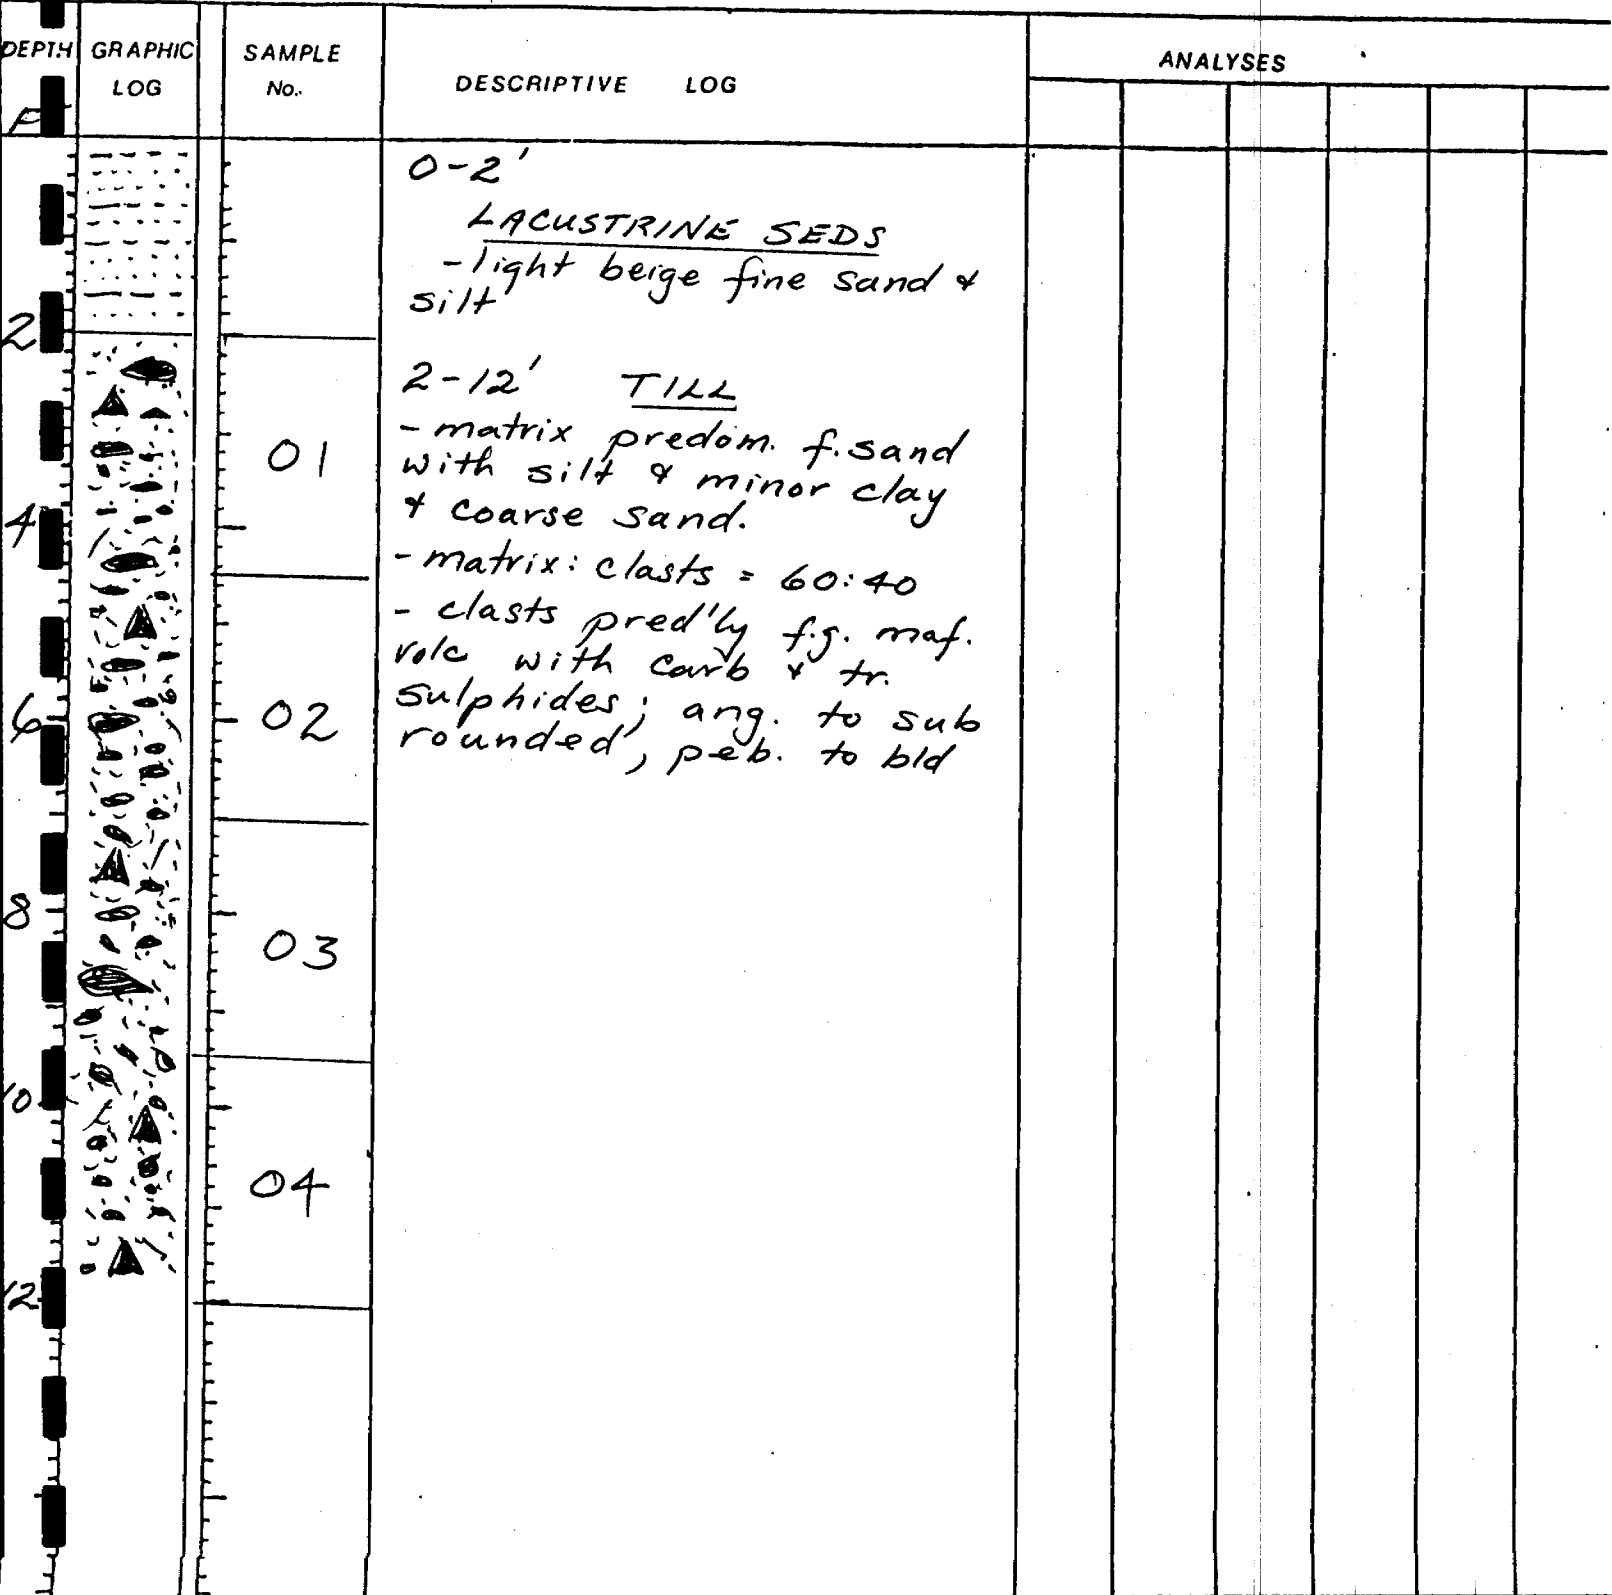 DEPTH GRAPHIC LOG SAMPLE No. DESCRIPTIVE LOG ANALYSES
0-2'
LACUSTRINE SEDS
- light beige fine sand &
silt
2
2-12' TILL
- matrix predom. f. sand
with silt & minor clay
& coarse sand.
01
4
- matrix: clasts = 60:40
- clasts pred'ly f.g. maf.
volc with carb & tr.
sulphides; ang. to sub
rounded, peb. to bld
6
02
8
03
10
04
12